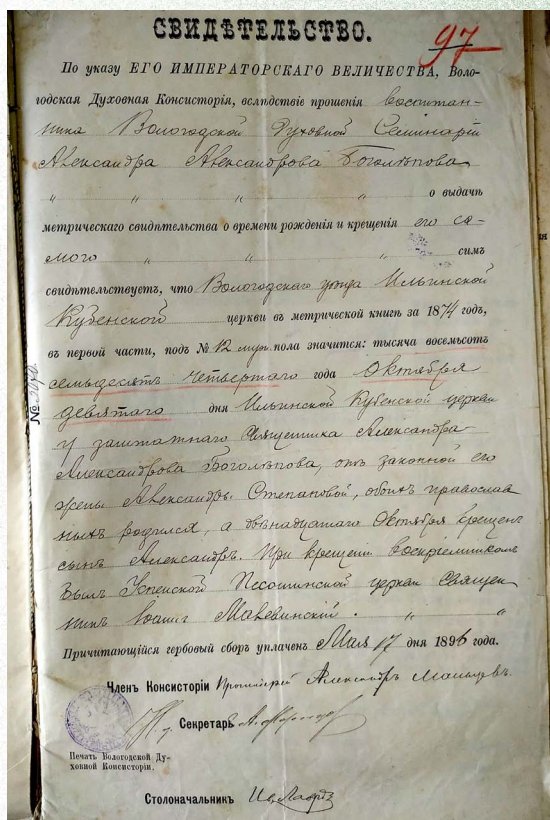 СВИДѢТЕЛЬСТВО.
97
По указу ЕГО ИМПЕРАТОРСКАГО ВЕЛИЧЕСТВА, Воло-
годская Духовная Консисторія, вслѣдствіе прошенія воспитан-
ника Вологодской Духовной Семинаріи
Александра Александрова Боголѣпова
" " " " о выдачѣ
метрическаго свидѣтельства о времени рожденія и крещенія его са-
мого " " " симъ
свидѣтельствуетъ, что Вологодскаго уѣзда Ильинской
Кубенской церкви въ метрической книгѣ за 1874 годъ,
въ первой части, подъ № 12 муж. пола значится: тысяча восемьсотъ
семьдесятъ четвертаго года Октября
девятаго дня Ильинской Кубенской церкви
у заштатнаго Священника Александра
Александрова Боголѣпова, отъ законной его
жены Александры Степановой, обоихъ православ
ныхъ родился, а двѣнадцатаго Октября крещенъ
сынъ Александръ. При крещеніи воспріемникомъ
былъ Успенской Песошинской церкви Священ
никъ Іоаннъ " "
Причитающійся гербовый сборъ уплаченъ Мая 17 дня 1896 года.
Членъ Консисторіи Протоіерей Александръ
Секретарь
Печать Вологодской Ду-
ховной Консисторіи.
Столоначальникъ Ив.